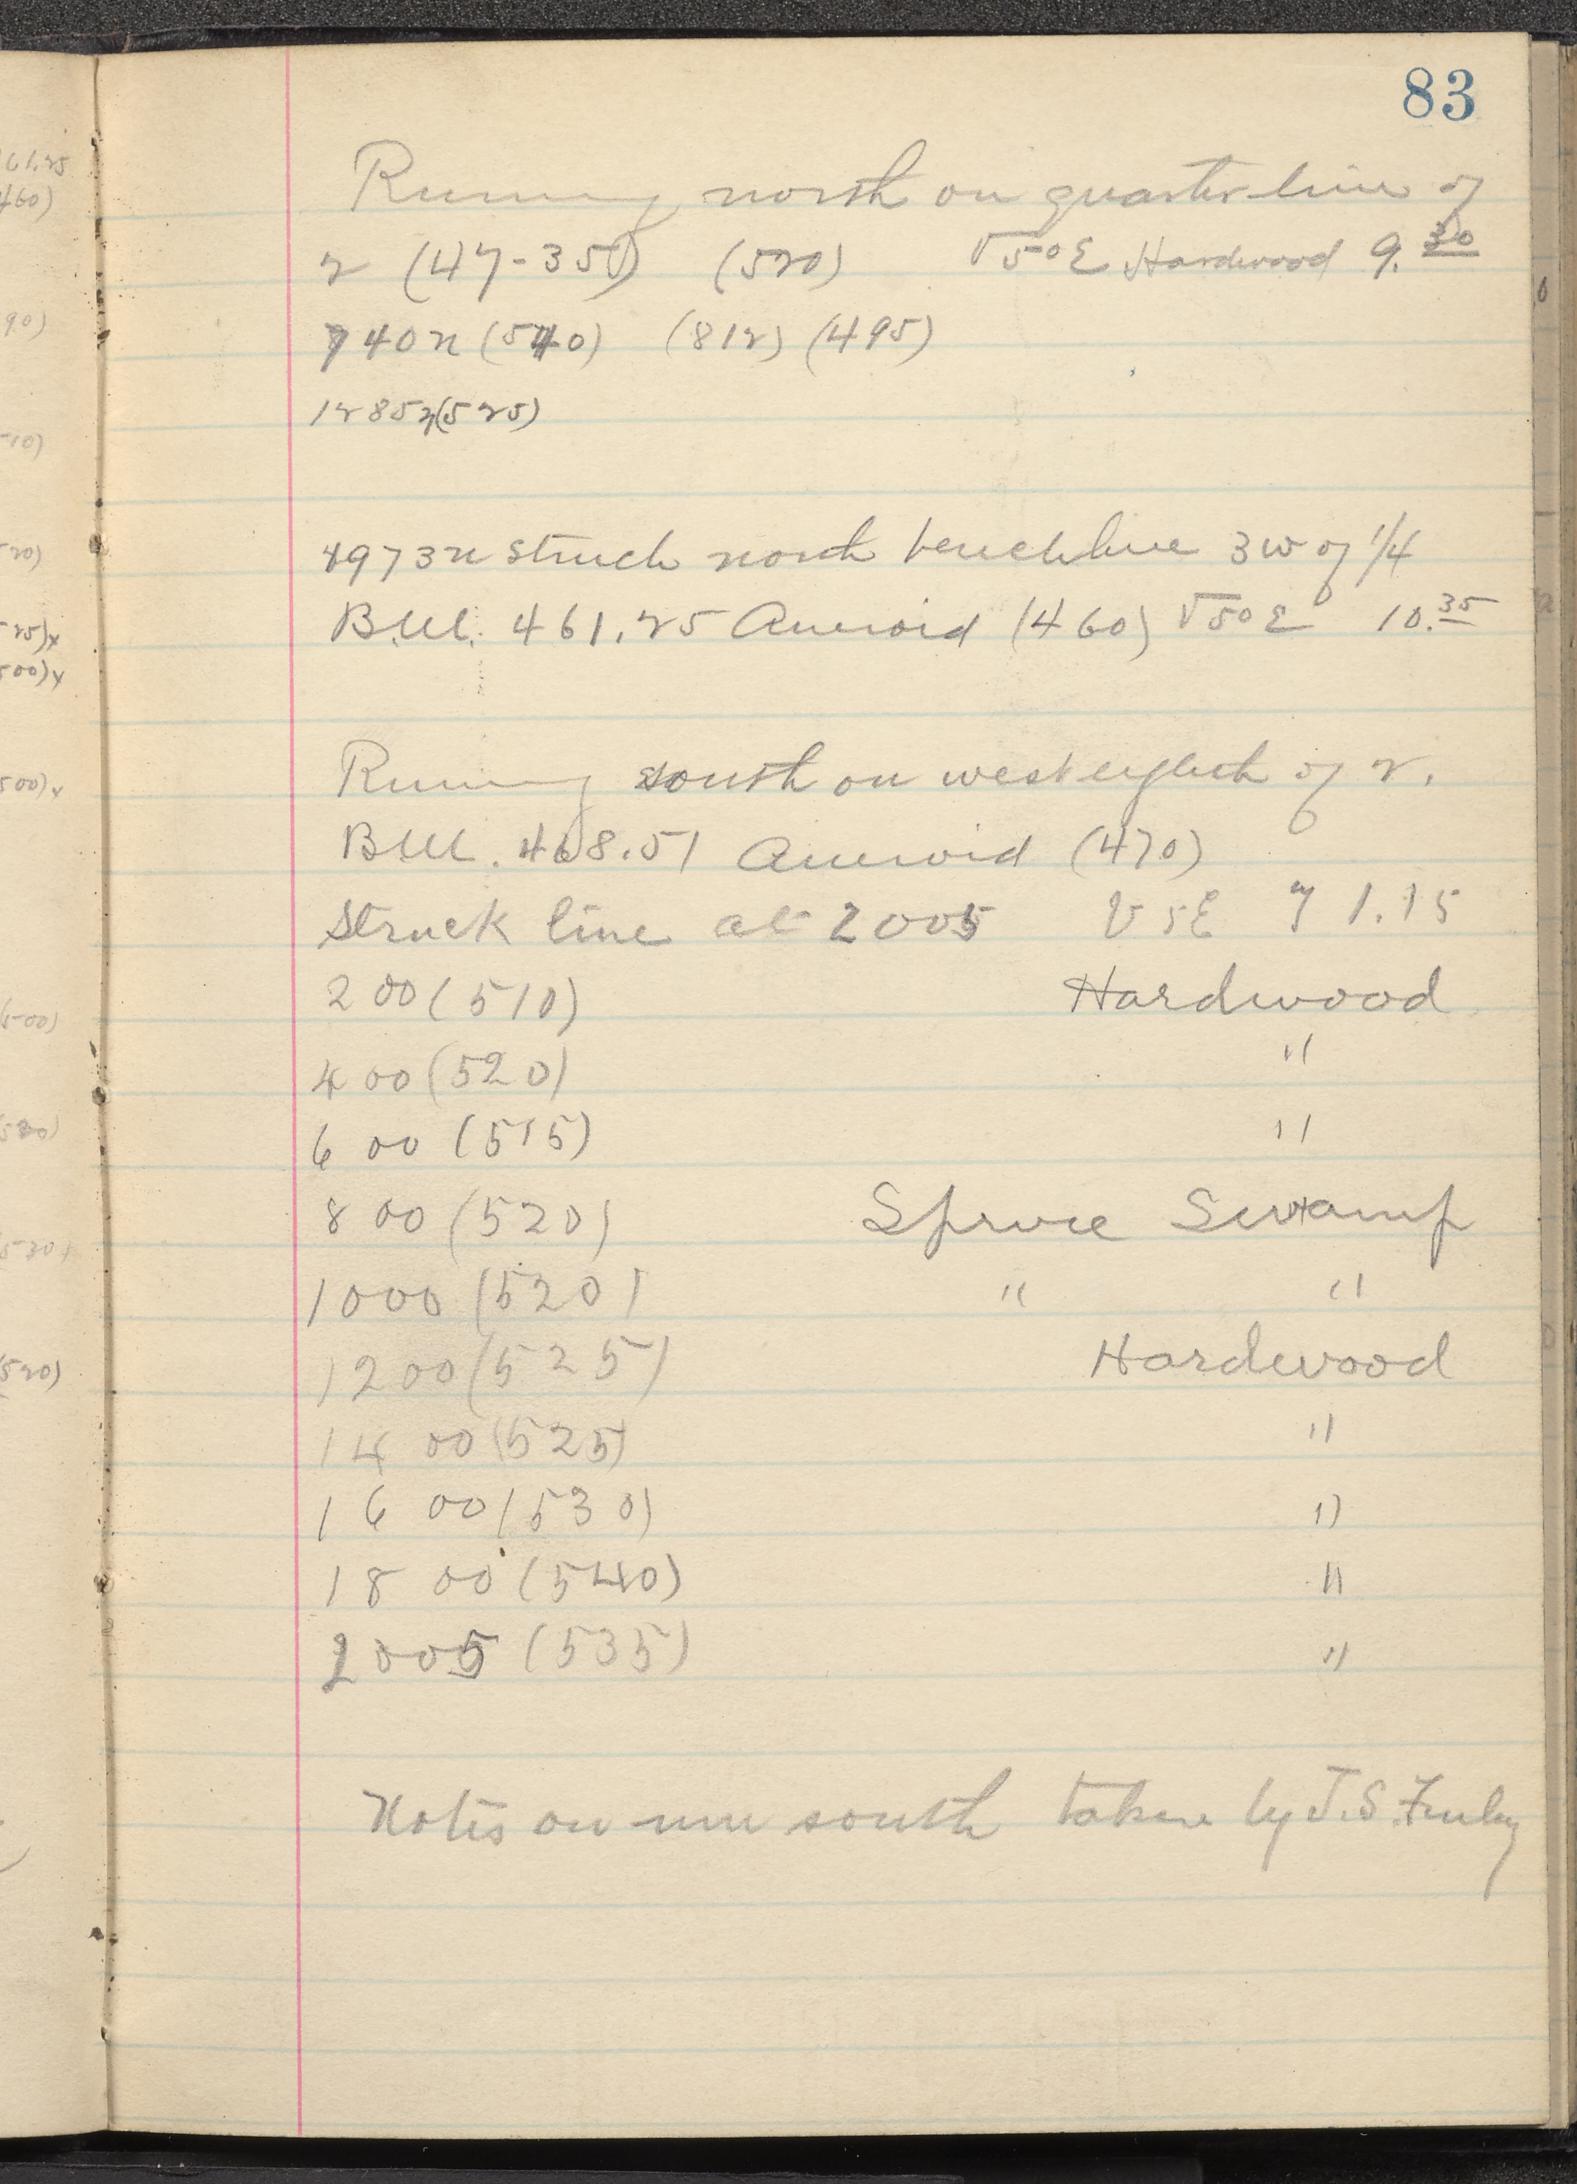 83
Running north on quarter line of
2 (47-35) (520) V5°E Hardwood 9.30
740n (540) (812) (495)
1285n (525)
struck north bench line 3w of 1/4
B.M. 461.25 Aneroid (460) V5°E 10.35
Running south on west eighth of 2.
B.M. 468.51 Aneroid (470)
Struck line at 2005 V5E 1.15
200 (510) Hardwood
400 (520) "
600 (515) "
800 (520) Spruce Swamp
1000 (520) " "
1200 (525) Hardwood
1400 (525) "
1600 (530) "
1800 (540) "
2005 (535) "
Notes on run south taken by J.S.